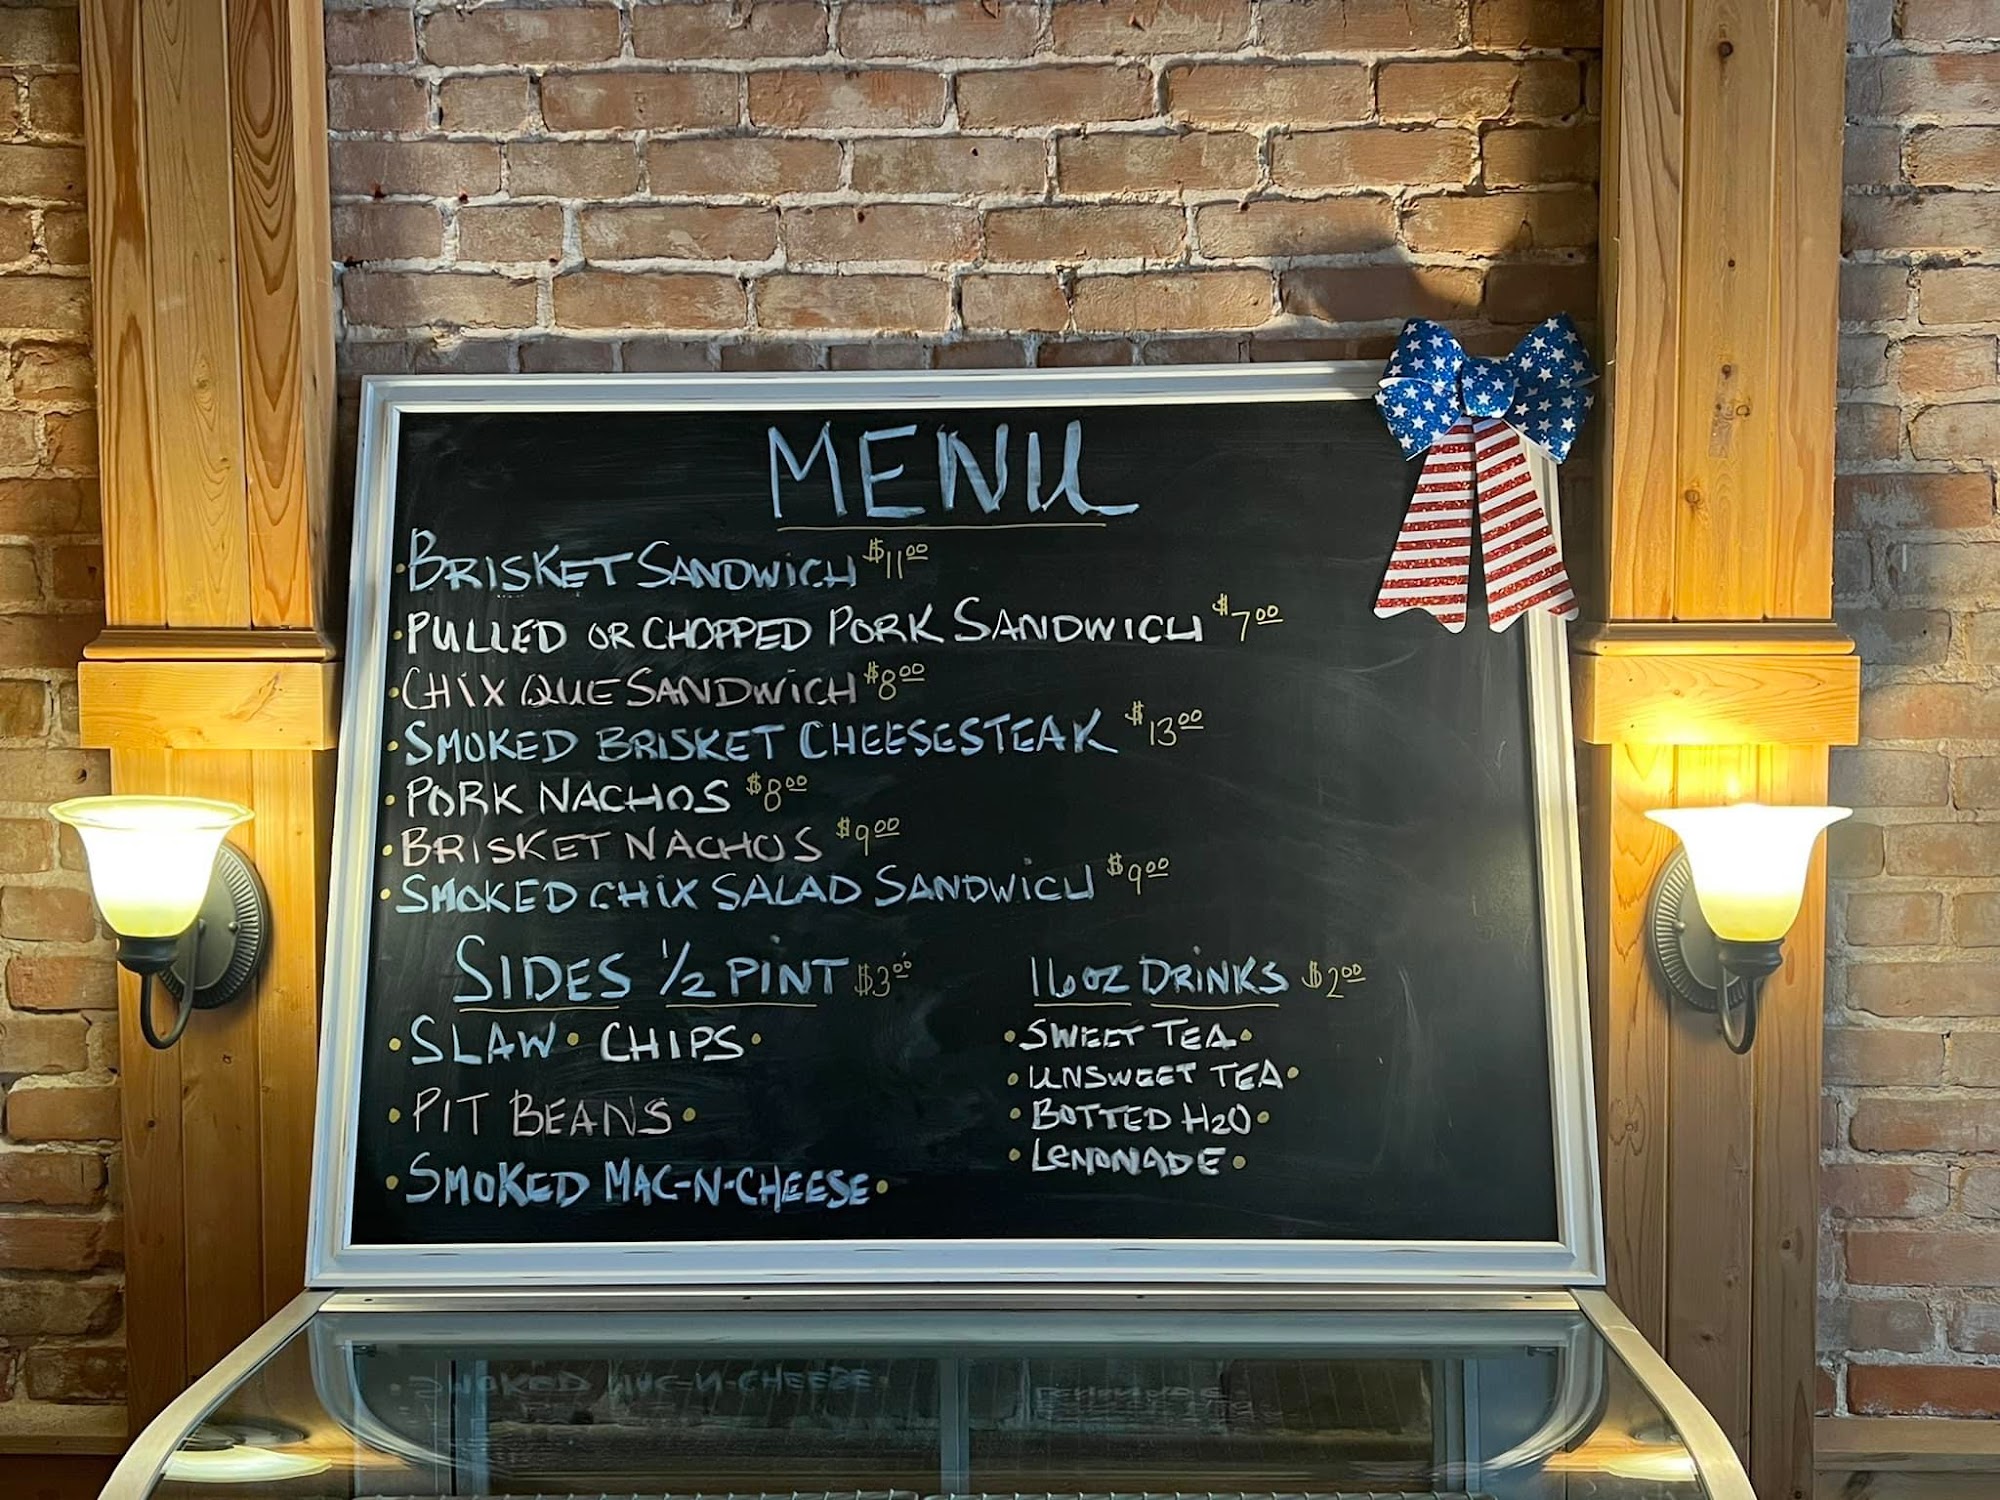 MENU
• BRISKET SANDWICH $11.00
• PULLED OR CHOPPED PORK SANDWICH $7.00
• CHIX QUE SANDWICH $8.00
• SMOKED BRISKET CHEESESTEAK $13.00
• PORK NACHOS $8.00
• BRISKET NACHOS $9.00
• SMOKED CHIX SALAD SANDWICH $9.00
SIDES 1/2 PINT $3.00
• SLAW • CHIPS •
• PIT BEANS •
• SMOKED MAC-N-CHEESE •
16 OZ DRINKS $2.00
• SWEET TEA •
• UNSWEET TEA •
• BOTTED H2O •
• LEMONADE •